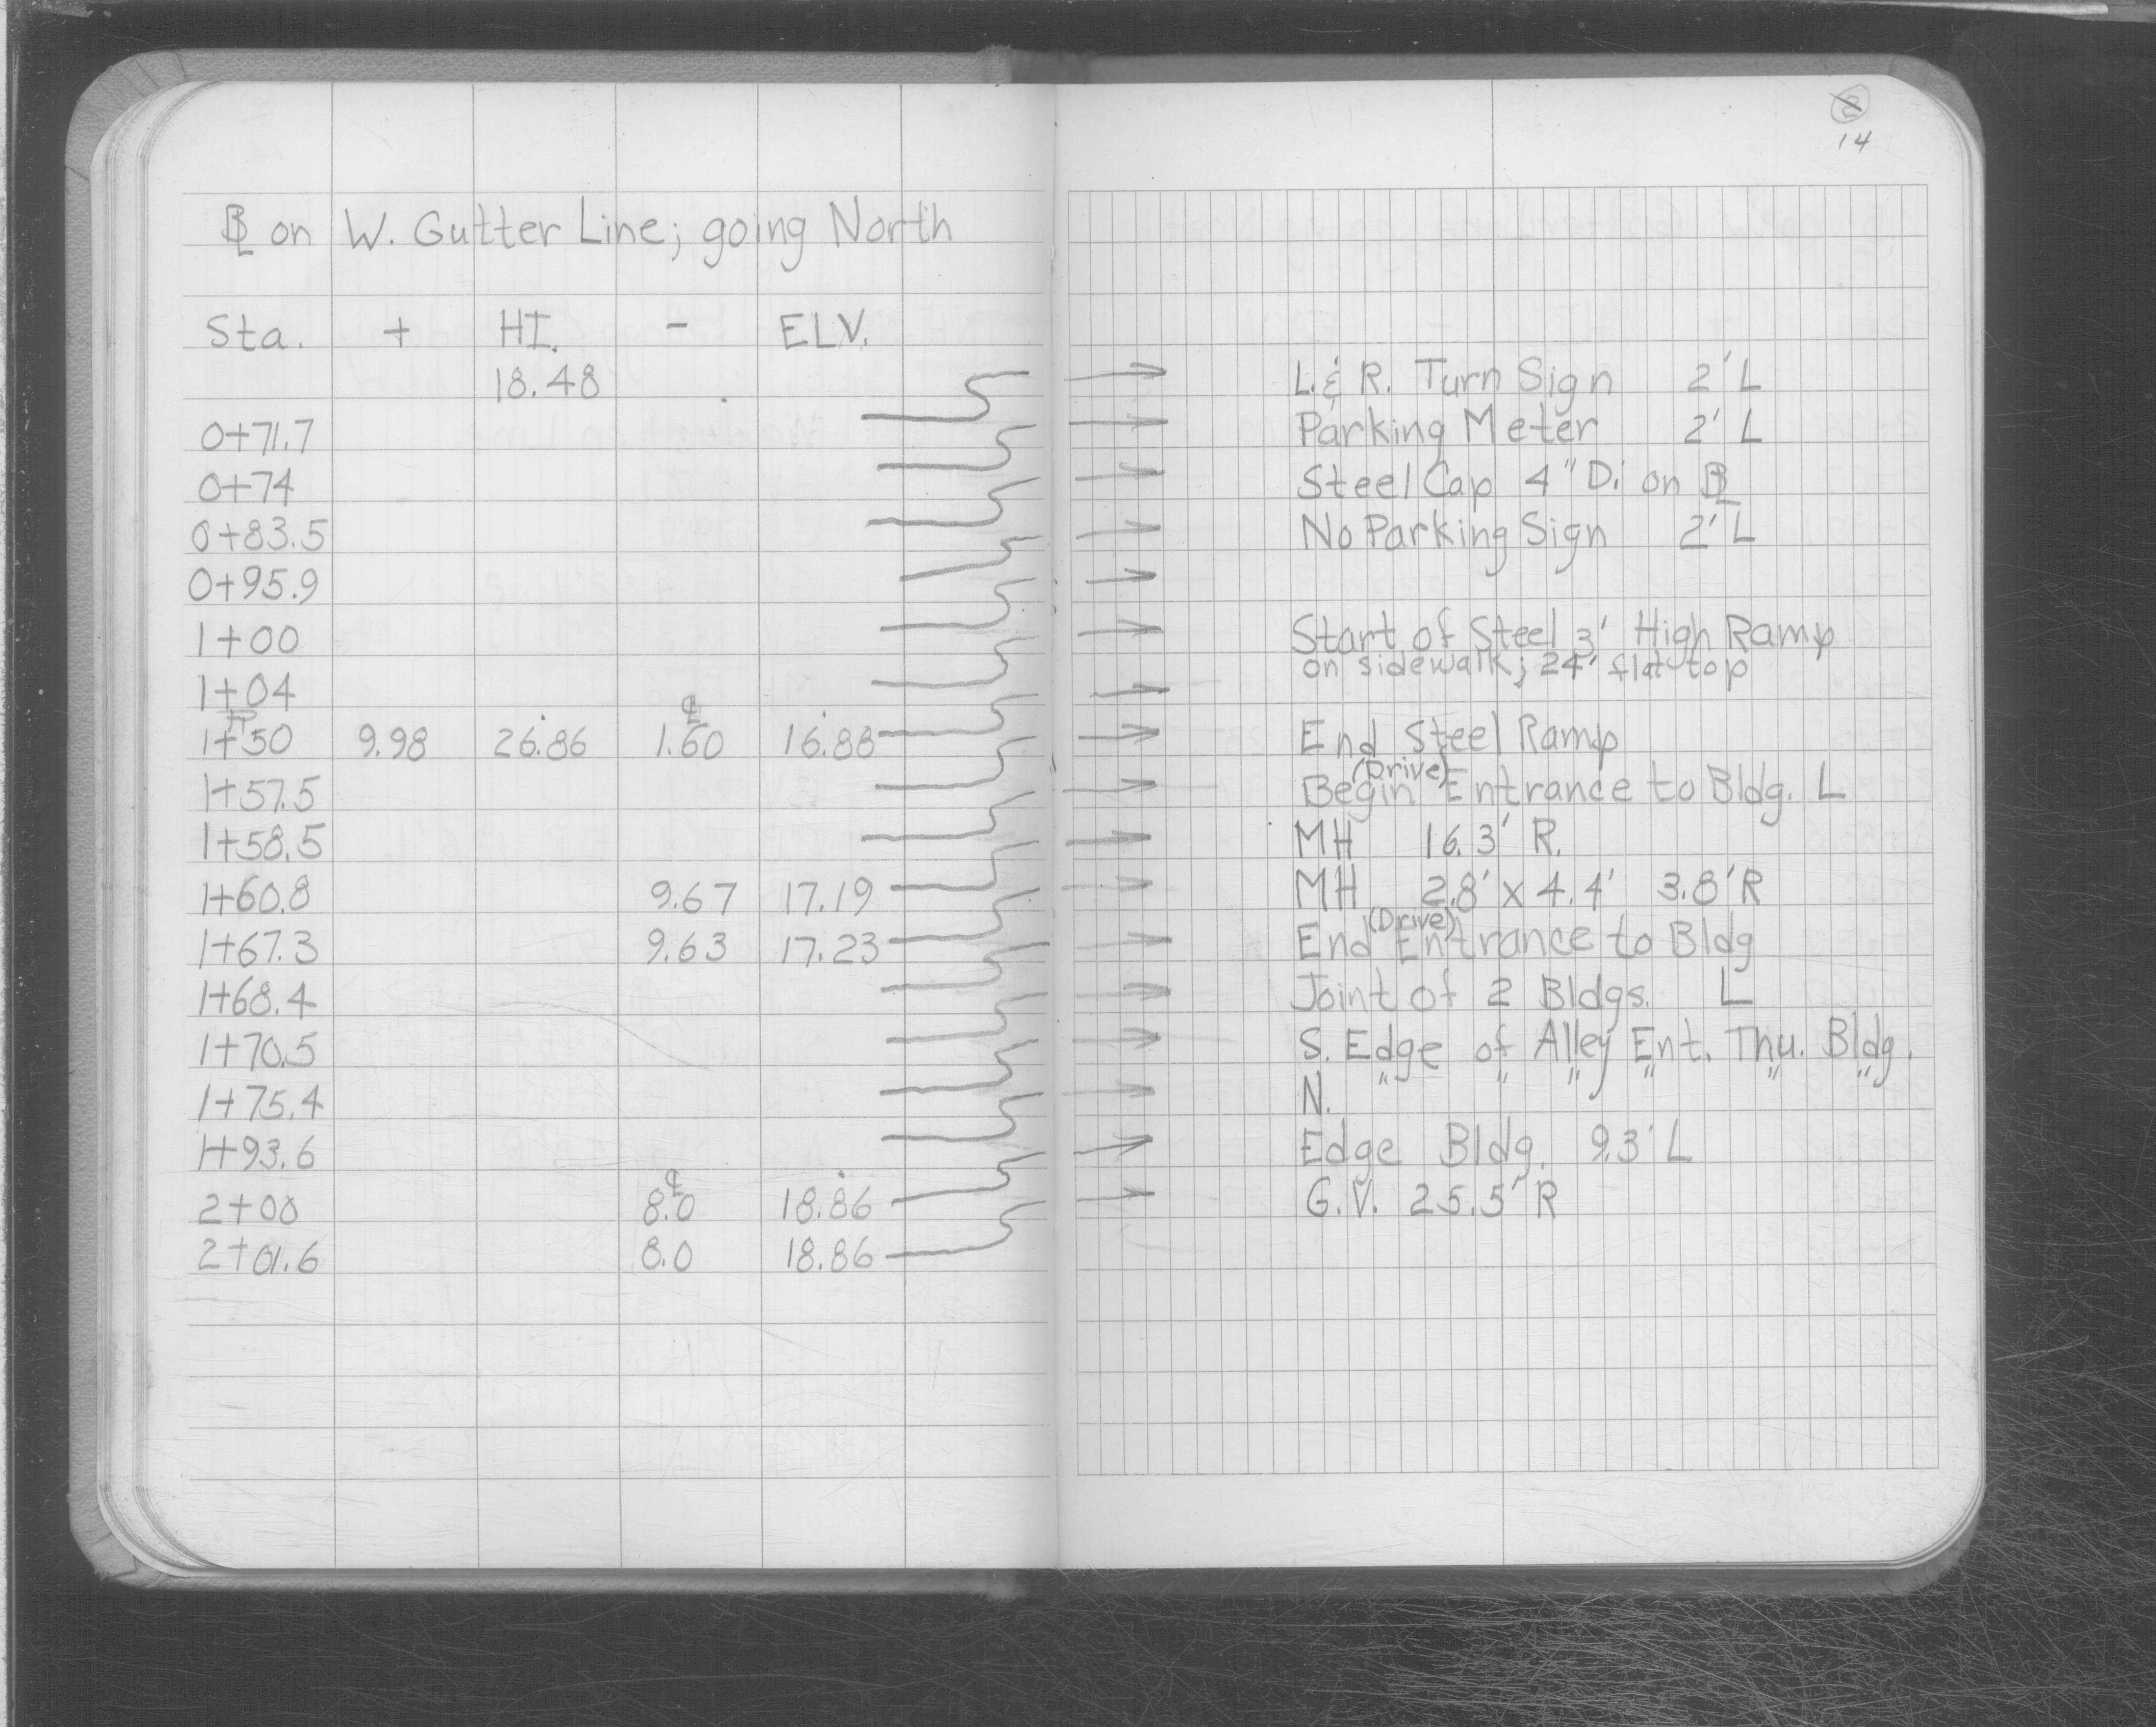 2
14
BL on W. Gutter Line; going North
Sta. + HI. - ELV.
18.48
0+71.7 L. & R. Turn Sign 2' L
0+74 Parking Meter 2' L
0+83.5 Steel Cap 4" Di on BL
0+95.9 No Parking Sign 2' L
1+00
1+04 Start of Steel 3' High Ramp
on sidewalk; 24' flat top
1+50 9.98 26.86 1.60 16.88
1+57.5 End Steel Ramp
(Drive)
1+58.5 Begin Entrance to Bldg. L
1+60.8 9.67 17.19 MH 16.3' R.
1+67.3 9.63 17.23 MH 2.8' x 4.4' 3.8' R
(Drive)
1+68.4 End Entrance to Bldg
1+70.5 Joint of 2 Bldgs. L
1+75.4 S. Edge of Alley Ent. Thu. Bldg.
1+93.6 N. " " " " " "
2+00 8.0 18.86 Edge Bldg. 9.3' L
2+01.6 8.0 18.86 G.V. 25.5' R